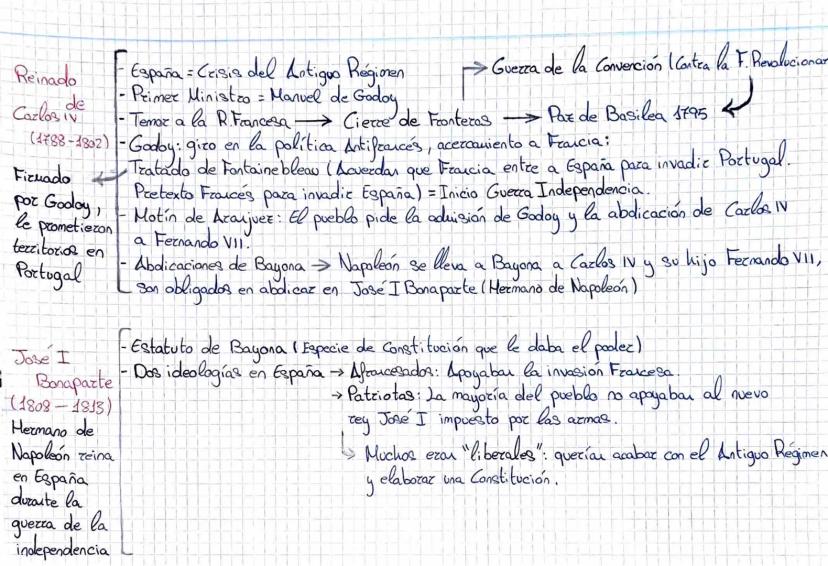 Reinado
de
Carlos IV
(1788-1802)
Firmado
por Godoy,
le prometieron
territorios en
Portugal
- España = Crisis del Antiguo Régimen
- Primer Ministro = Manuel de Godoy
- Temor a la R. Francesa → Cierre de Fronteras → Paz de Basilea 1795
→ Guerra de la Convención (Contra la F. Revolucionar
- Godoy: giro en la política Antifrancés, acercamiento a Francia:
Tratado de Fontainebleau (Acuerdan que Francia entre a España para invadir Portugal.
Pretexto Francés para invadir España) = Inicio Guerra Independencia.
- Motín de Aranjuez: El pueblo pide la admisión de Godoy y la abdicación de Carlos IV
a Fernando VII.
- Abdicaciones de Bayona → Napoleón se lleva a Bayona a Carlos IV y su hijo Fernando VII,
son obligados en abdicar en José I Bonaparte (Hermano de Napoleón)
José I
Bonaparte
(1808-1813)
Hermano de
Napoleón reina
en España
durante la
guerra de la
independencia
- Estatuto de Bayona (Especie de Constitución que le daba el poder)
- Dos ideologías en España → Afrancesados: Apoyaban la invasión Francesa.
→ Patriotas: La mayoría del pueblo no apoyaban al nuevo
rey José I impuesto por las armas.
↳ Muchos eran "liberales": querían acabar con el Antiguo Régimen
y elaborar una Constitución.